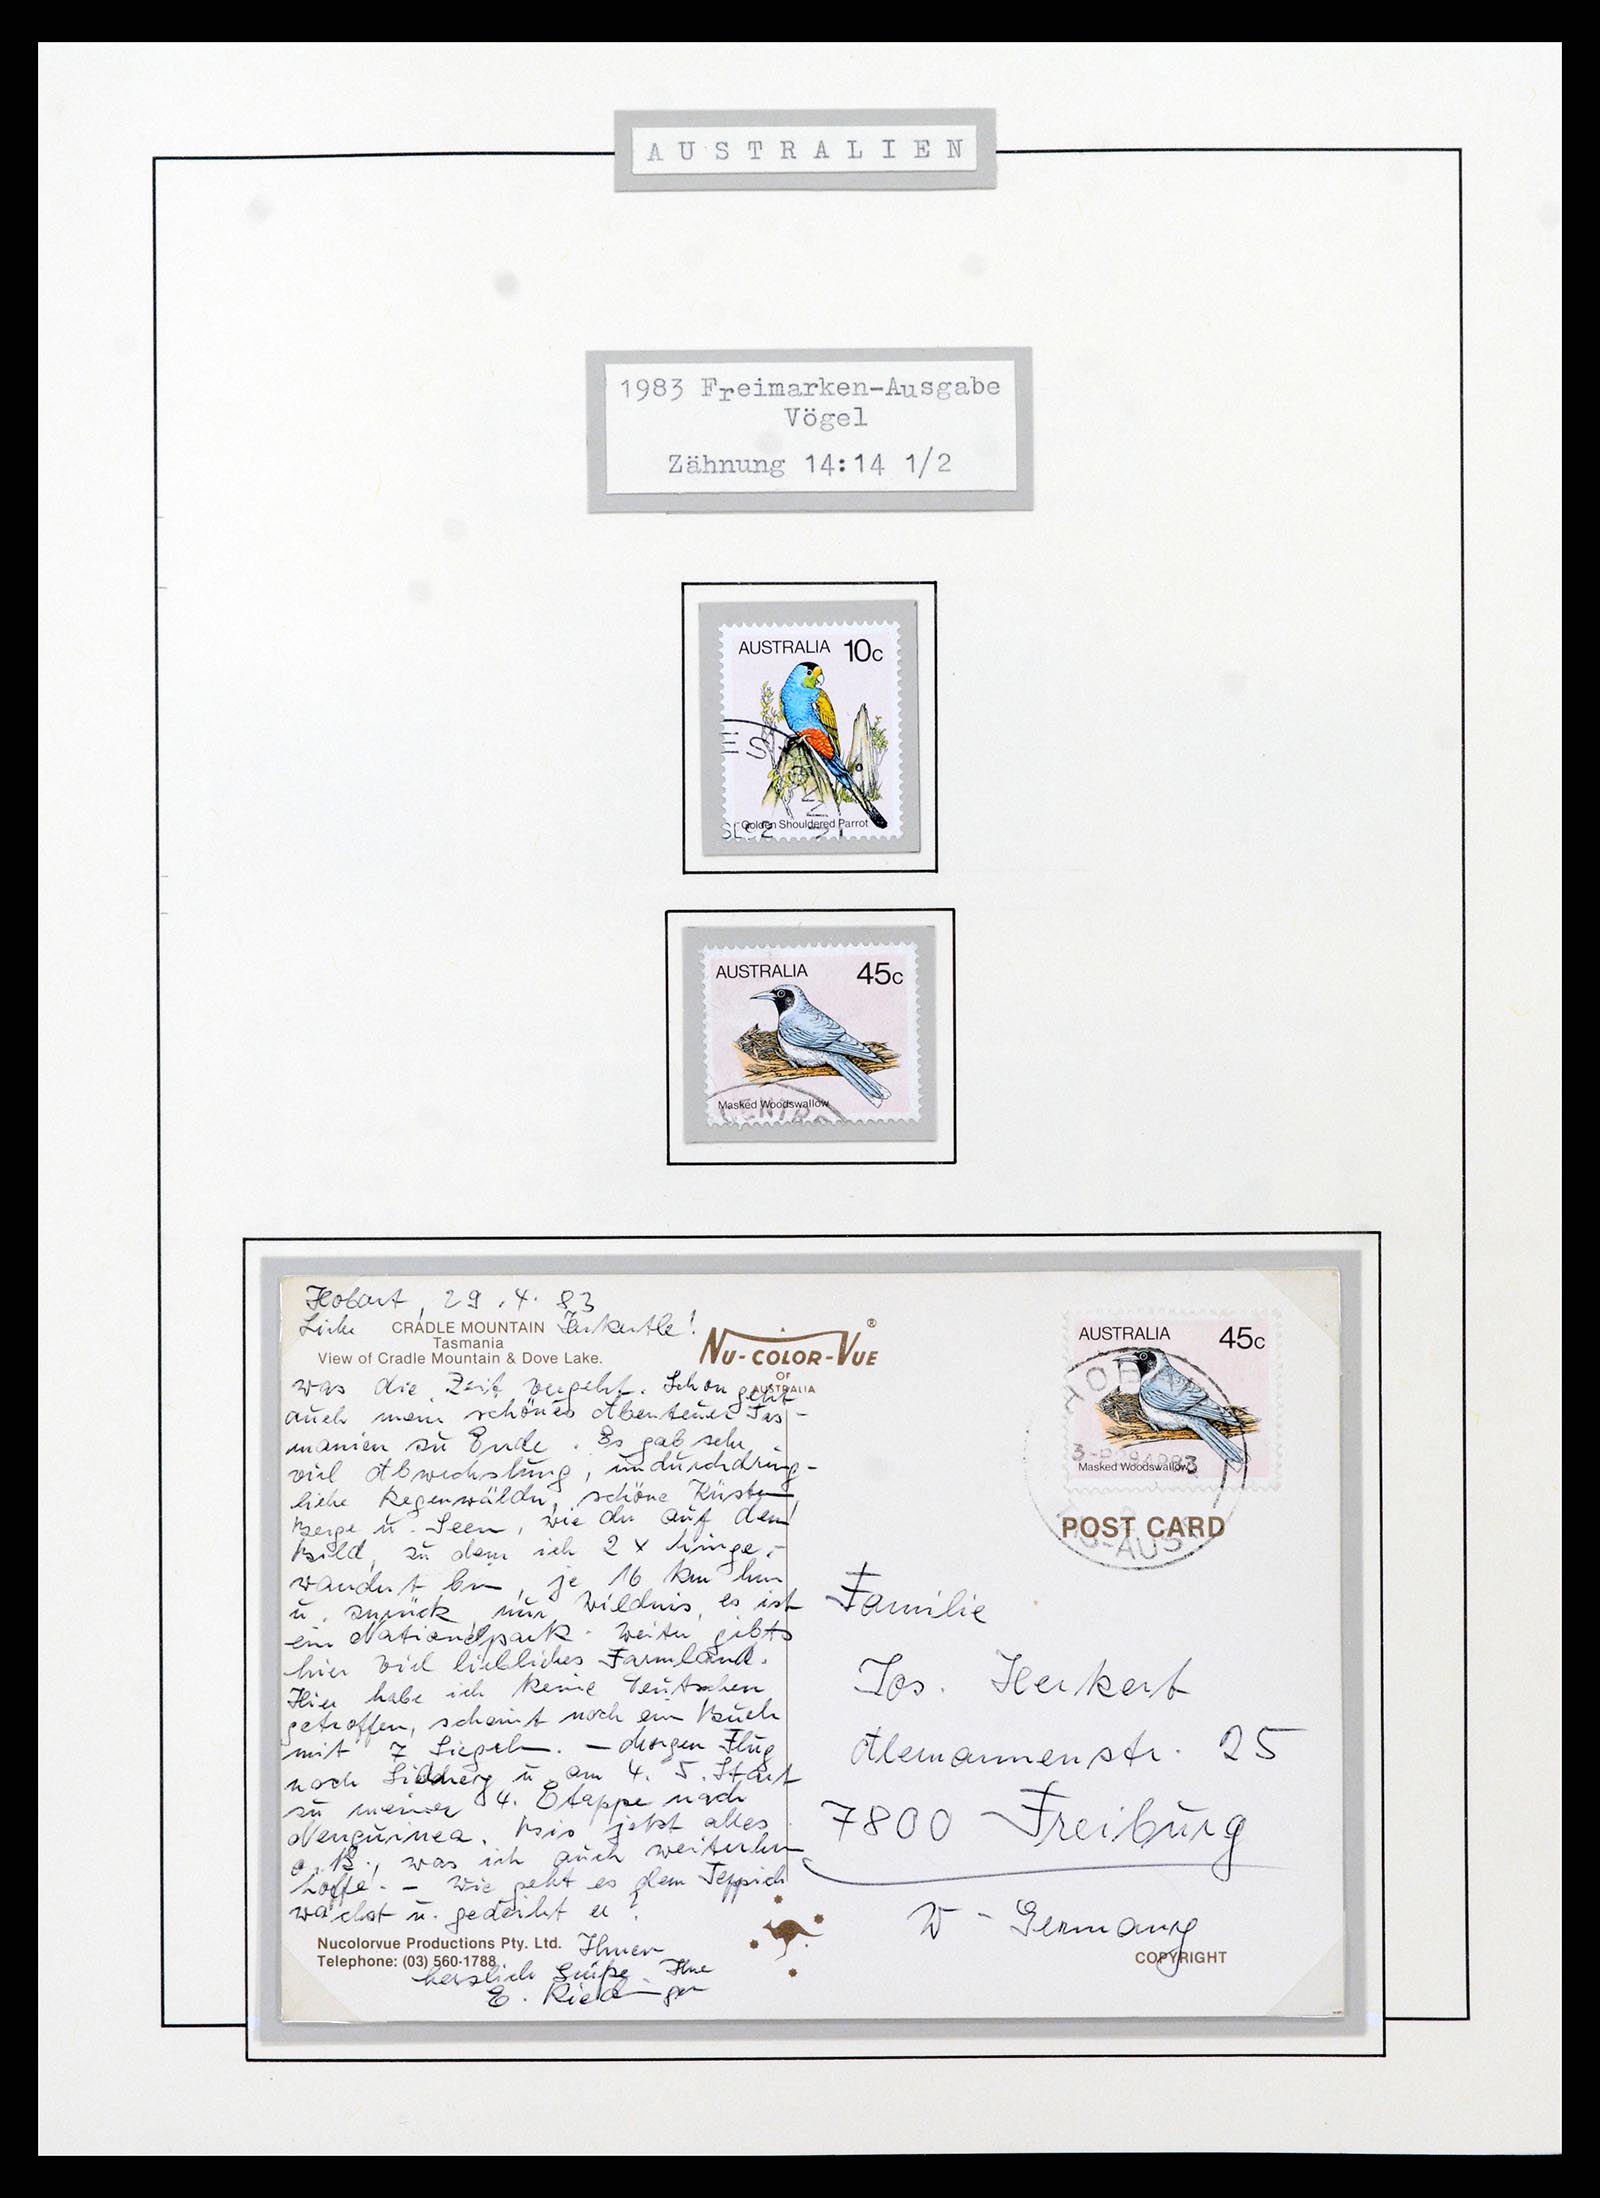 AUSTRALIEN
1983 Freimarken-Ausgabe
Vögel
Zähnung 14:14 1/2
AUSTRALIA 10c
ES
Golden Shouldered Parrot
AUSTRALIA 45c
Masked Woodswallow
CENTRE
Hobart, 29.4.83
Liebe Herkertle!
CRADLE MOUNTAIN
Tasmania
View of Cradle Mountain & Dove Lake.
NU-COLOR-VUE ®
OF
AUSTRALIA
was die Zeit vergeht. Schon geht
auch mein schönes Abenteuer Tas-
manien zu Ende. Es gab sehr
viel Abwechslung, undurchdring-
liche Regenwälder, schöne Küsten,
Berge u. Seen, wie der auf dem
Bild, zu dem ich 2 x hinge-
wandert bin, je 16 km hin
u. zurück, nur Wildnis, es ist
ein Nationalpark. Weiter gibts
hier viel liebliches Farmland.
Hier habe ich keine Deutschen
getroffen, scheint noch ein Buch
mit 7 Siegeln. - Morgen Flug
nach u. am 4. 5. Start
zu meiner 4. Etappe nach
Neuguinea. Bis jetzt alles
o.k., was ich auch weiterhin
hoffe. - Wie geht es dem Teppich
wächst u. gedeiht er?
Ihnen
herzlich Grüße Ihre
E.
Nucolorvue Productions Pty. Ltd.
Telephone: (03) 560-1788
AUSTRALIA 45c
Masked Woodswallow
HOBART
POST CARD
Familie
Jos. Herkert
Alemannenstr. 25
7800 Freiburg
W-Germany
COPYRIGHT